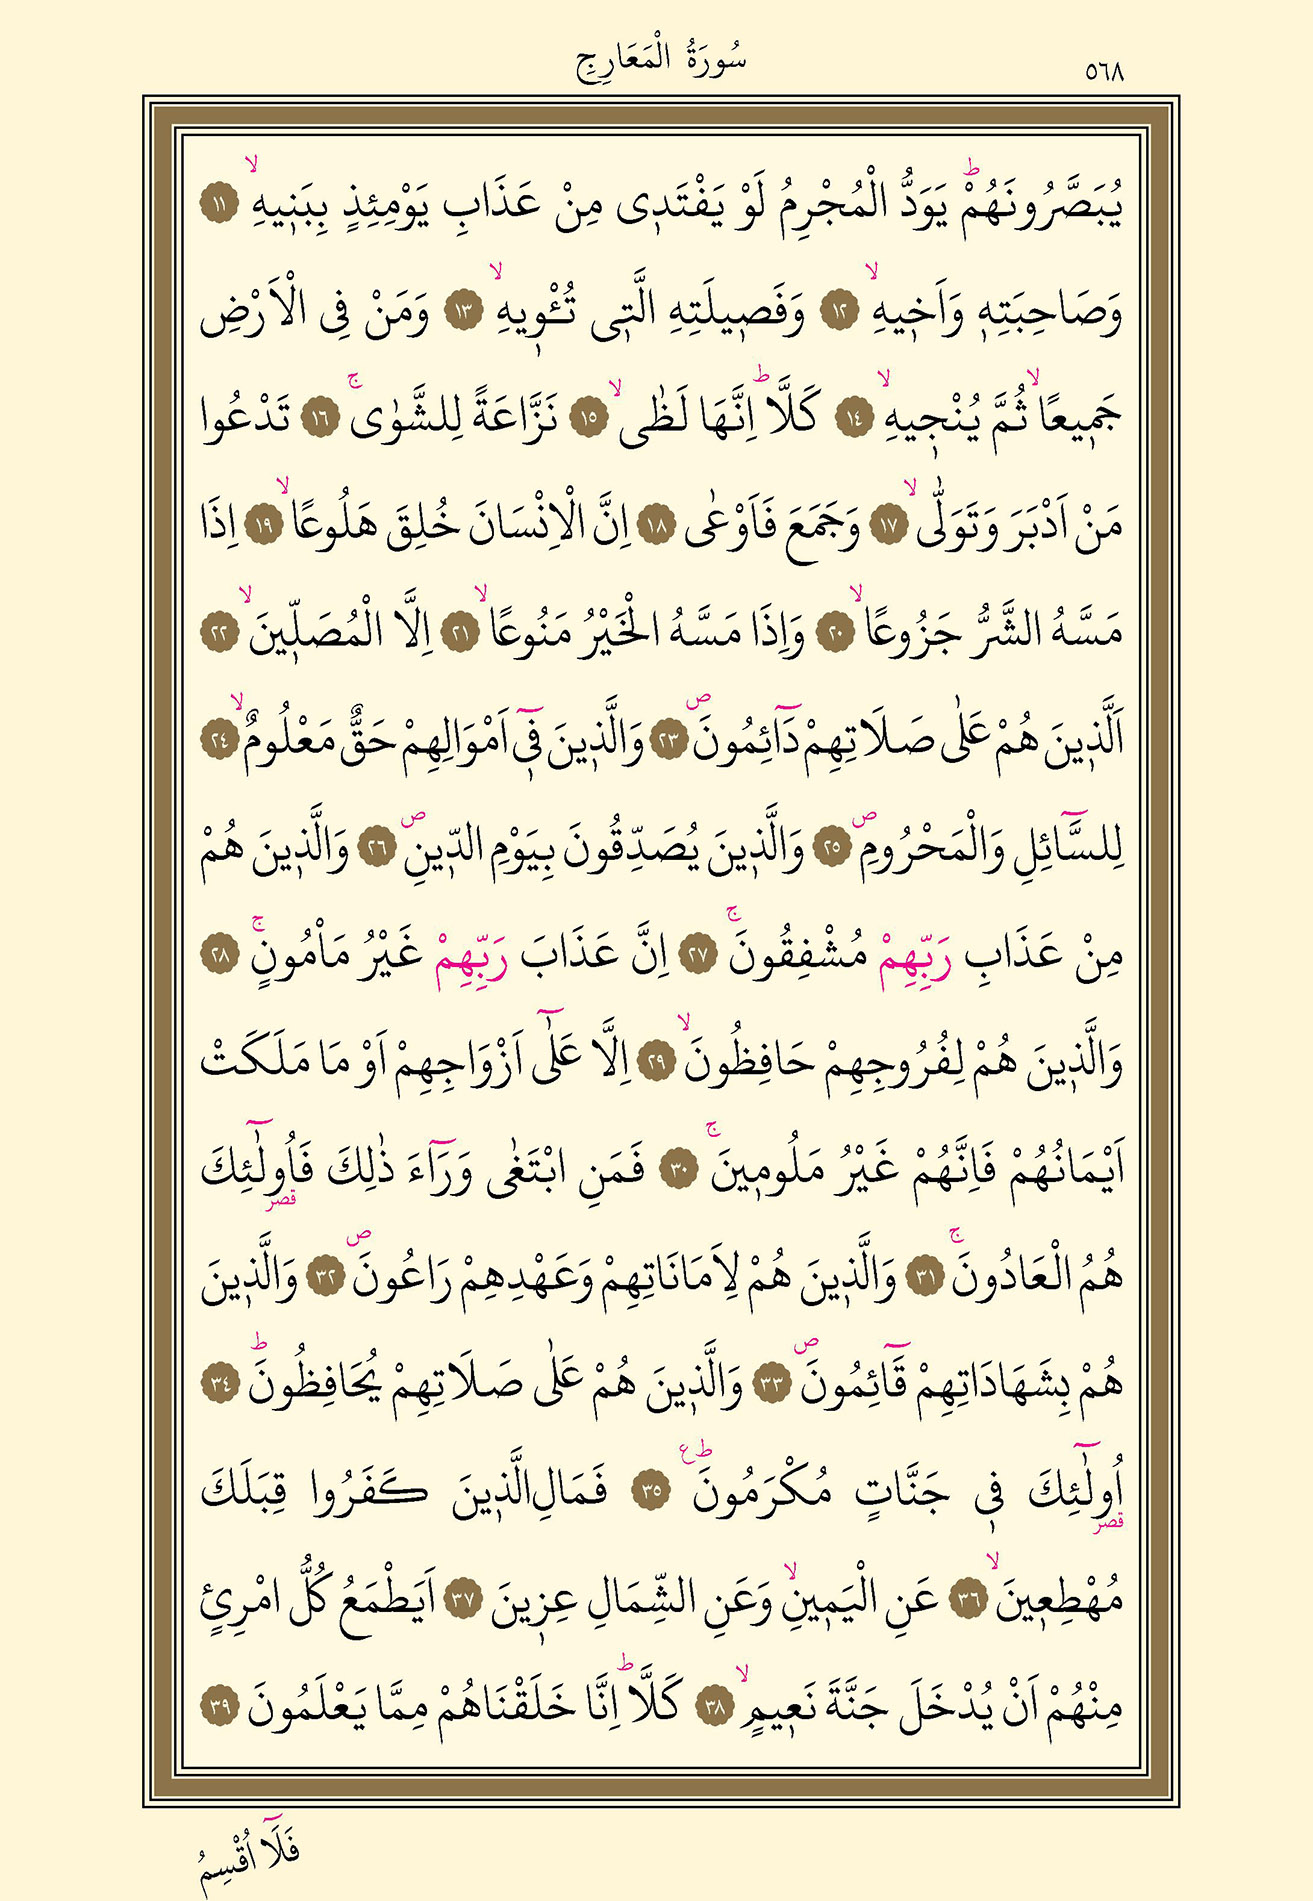 ٥٦٨
سُورَةُ الْمَعَارِجِ
يُبَصَّرُونَهُمْۜ يَوَدُّ الْمُجْرِمُ لَوْ يَفْتَد۪ى مِنْ عَذَابِ يَوْمِئِذٍ بِبَن۪يهِۙ ﴿١١﴾
وَصَاحِبَتِه۪ وَاَخ۪يهِۙ ﴿١٢﴾ وَفَص۪يلَتِهِ الَّت۪ى تُـْٔو۪يهِۙ ﴿١٣﴾ وَمَنْ فِى الْاَرْضِ
جَم۪يعًاۙ ثُمَّ يُنْج۪يهِۙ ﴿١٤﴾ كَلَّاۜ اِنَّهَا لَظٰىۙ ﴿١٥﴾ نَزَّاعَةً لِلشَّوٰىۚ ﴿١٦﴾ تَدْعُوا
مَنْ اَدْبَرَ وَتَوَلّٰىۙ ﴿١٧﴾ وَجَمَعَ فَاَوْعٰى ﴿١٨﴾ اِنَّ الْاِنْسَانَ خُلِقَ هَلُوعًاۙ ﴿١٩﴾ اِذَا
مَسَّهُ الشَّرُّ جَزُوعًاۙ ﴿٢٠﴾ وَاِذَا مَسَّهُ الْخَيْرُ مَنُوعًاۙ ﴿٢١﴾ اِلَّا الْمُصَلّ۪ينَۙ ﴿٢٢﴾
اَلَّذ۪ينَ هُمْ عَلٰى صَلَاتِهِمْ دَٓائِمُونَۖ ﴿٢٣﴾ وَالَّذ۪ينَ ف۪ٓى اَمْوَالِهِمْ حَقٌّ مَعْلُومٌۙ ﴿٢٤﴾
لِلسَّٓائِلِ وَالْمَحْرُومِۖ ﴿٢٥﴾ وَالَّذ۪ينَ يُصَدِّقُونَ بِيَوْمِ الدّ۪ينِۖ ﴿٢٦﴾ وَالَّذ۪ينَ هُمْ
مِنْ عَذَابِ رَبِّهِمْ مُشْفِقُونَۚ ﴿٢٧﴾ اِنَّ عَذَابَ رَبِّهِمْ غَيْرُ مَاْمُونٍۚ ﴿٢٨﴾
وَالَّذ۪ينَ هُمْ لِفُرُوجِهِمْ حَافِظُونَۙ ﴿٢٩﴾ اِلَّا عَلٰٓى اَزْوَاجِهِمْ اَوْ مَا مَلَكَتْ
اَيْمَانُهُمْ فَاِنَّهُمْ غَيْرُ مَلُوم۪ينَۚ ﴿٣٠﴾ فَمَنِ ابْتَغٰى وَرَٓاءَ ذٰلِكَ فَاُو۬لٰٓئِكَ
قصر
هُمُ الْعَادُونَۚ ﴿٣١﴾ وَالَّذ۪ينَ هُمْ لِاَمَانَاتِهِمْ وَعَهْدِهِمْ رَاعُونَۖ ﴿٣٢﴾ وَالَّذ۪ينَ
هُمْ بِشَهَادَاتِهِمْ قَٓائِمُونَۖ ﴿٣٣﴾ وَالَّذ۪ينَ هُمْ عَلٰى صَلَاتِهِمْ يُحَافِظُونَۜ ﴿٣٤﴾
اُو۬لٰٓئِكَ ف۪ى جَنَّاتٍ مُكْرَمُونَۜ ع ﴿٣٥﴾ فَمَالِ الَّذ۪ينَ كَفَرُوا قِبَلَكَ
قصر
مُهْطِع۪ينَۙ ﴿٣٦﴾ عَنِ الْيَم۪ينِۙ وَعَنِ الشِّمَالِ عِز۪ينَ ﴿٣٧﴾ اَيَطْمَعُ كُلُّ امْرِئٍ
مِنْهُمْ اَنْ يُدْخَلَ جَنَّةَ نَع۪يمٍۙ ﴿٣٨﴾ كَلَّاۜ اِنَّا خَلَقْنَاهُمْ مِمَّا يَعْلَمُونَ ﴿٣٩﴾
فَلَٓا اُقْسِمُ